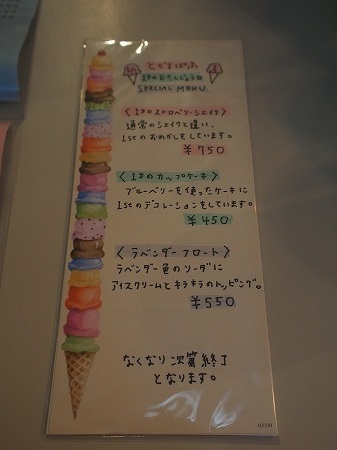 1stのおたんじょう日
SPECIAL MENU
〈1stのストロベリーシェイク〉
通常のシェイクと違い、
1stのおめかしをしています。
¥750
〈1stのカップケーキ〉
ブルーベリーを使ったケーキに
1stのデコレーションをしています。
¥450
〈ラベンダーフロート〉
ラベンダー色のソーダに
アイスクリームとキラキラのトッピング。
¥550
なくなり次第終了
となります。